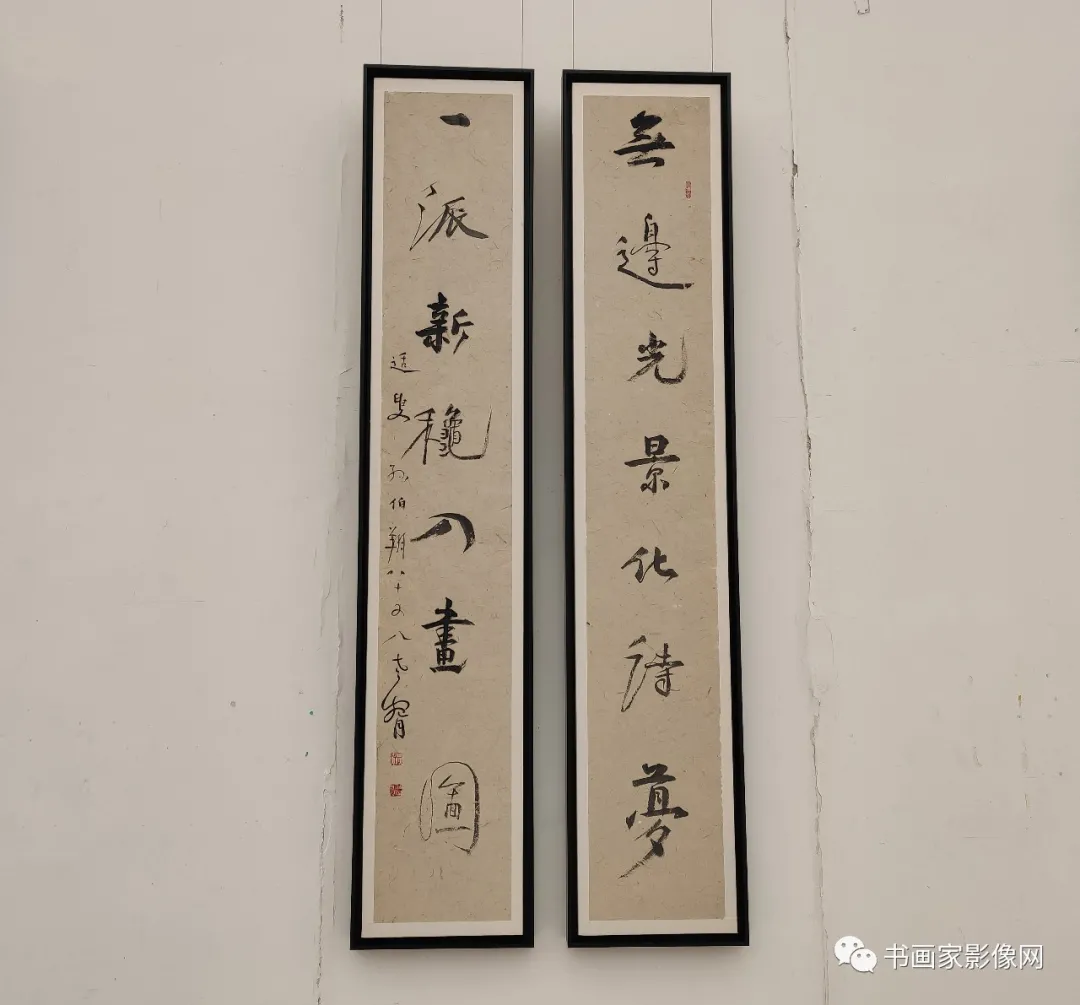 無邊光景化詩夢
一派新穐入畫圖
适叟孫伯翔八十又八
书画家影像网